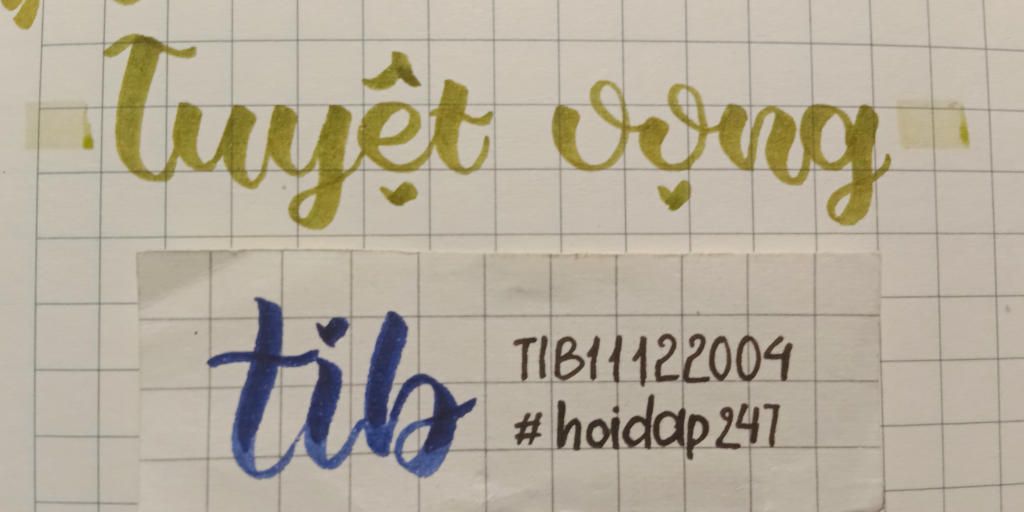 Tuyệt vọng
tib
TIB11122004
#hoidap247